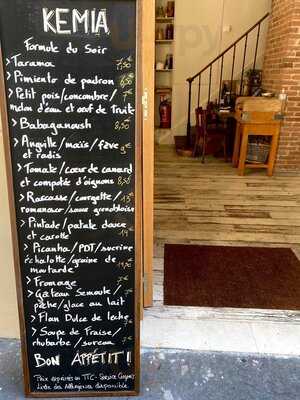 KEMIA
Formule du Soir
> Tarama 7€
> Pimiento de padron 6,50
> Petit pois/concombre/
melon d'eau et œuf de Truite
> Babaganoush 8,50
> Anguille/maïs/fève
et radis 9€
> Tomate/cœur de canard
et compotée d'oignons 8,50
> Rascasse/courgette/
romanesco/sauce grenobloise
> Pintade/patate douce
et carotte 14
> Picanha/PDT/sucrine
échalotte/graine de
moutarde 19,50
> Fromage 7€
> Gâteau Semoule/
pêche/glace au lait 7€
> Flan Dulce de leche 7€
> Soupe de Fraise/
rhubarbe/sureau 7€
BON APPÉTIT !
Prix exprimés en TTC - Service Compris
Liste des Allergènes disponible